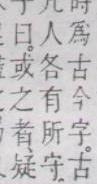 時爲古今字。古
凡人各有所守。
曰。或之者。疑